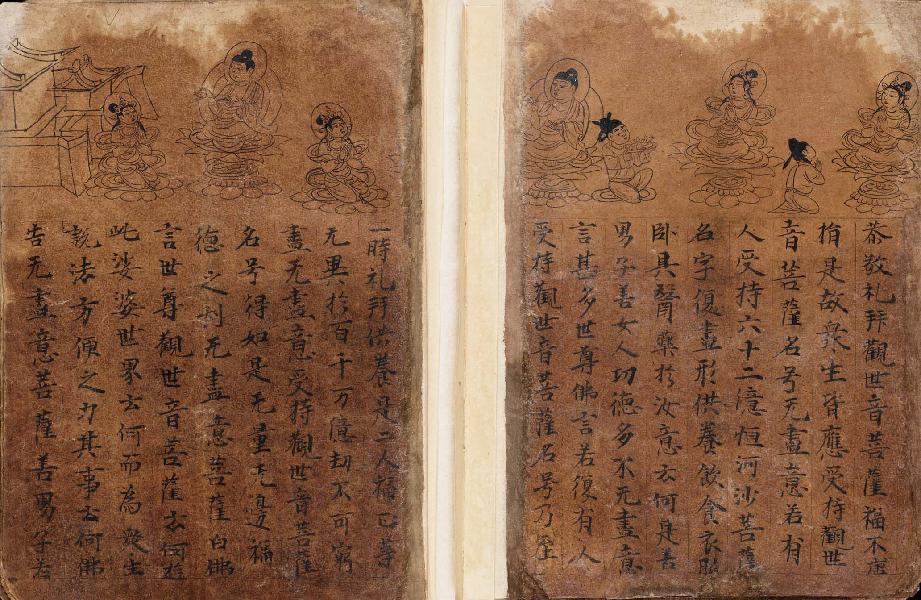 恭敬礼拜觀世音菩薩福不唐
捐是故衆生皆應受持觀世
音菩薩名号无盡意若有
人受持六十二億恒河沙菩薩
名字復盡形供養飲食衣服
卧具醫藥於汝意云何是善
男子善女人功德多不无盡意
言甚多世尊佛言若復有人
受持觀世音菩薩名号乃至
一時礼拜供養是二人福正等
无異於百千万億劫不可窮
盡无盡意受持觀世音菩薩
名号得如是无量无邊福
德之利无盡意菩薩白佛
言世尊觀世音菩薩云何遊
此娑婆世界云何而為衆生
說法方便之力其事云何佛
告无盡意菩薩善男子若